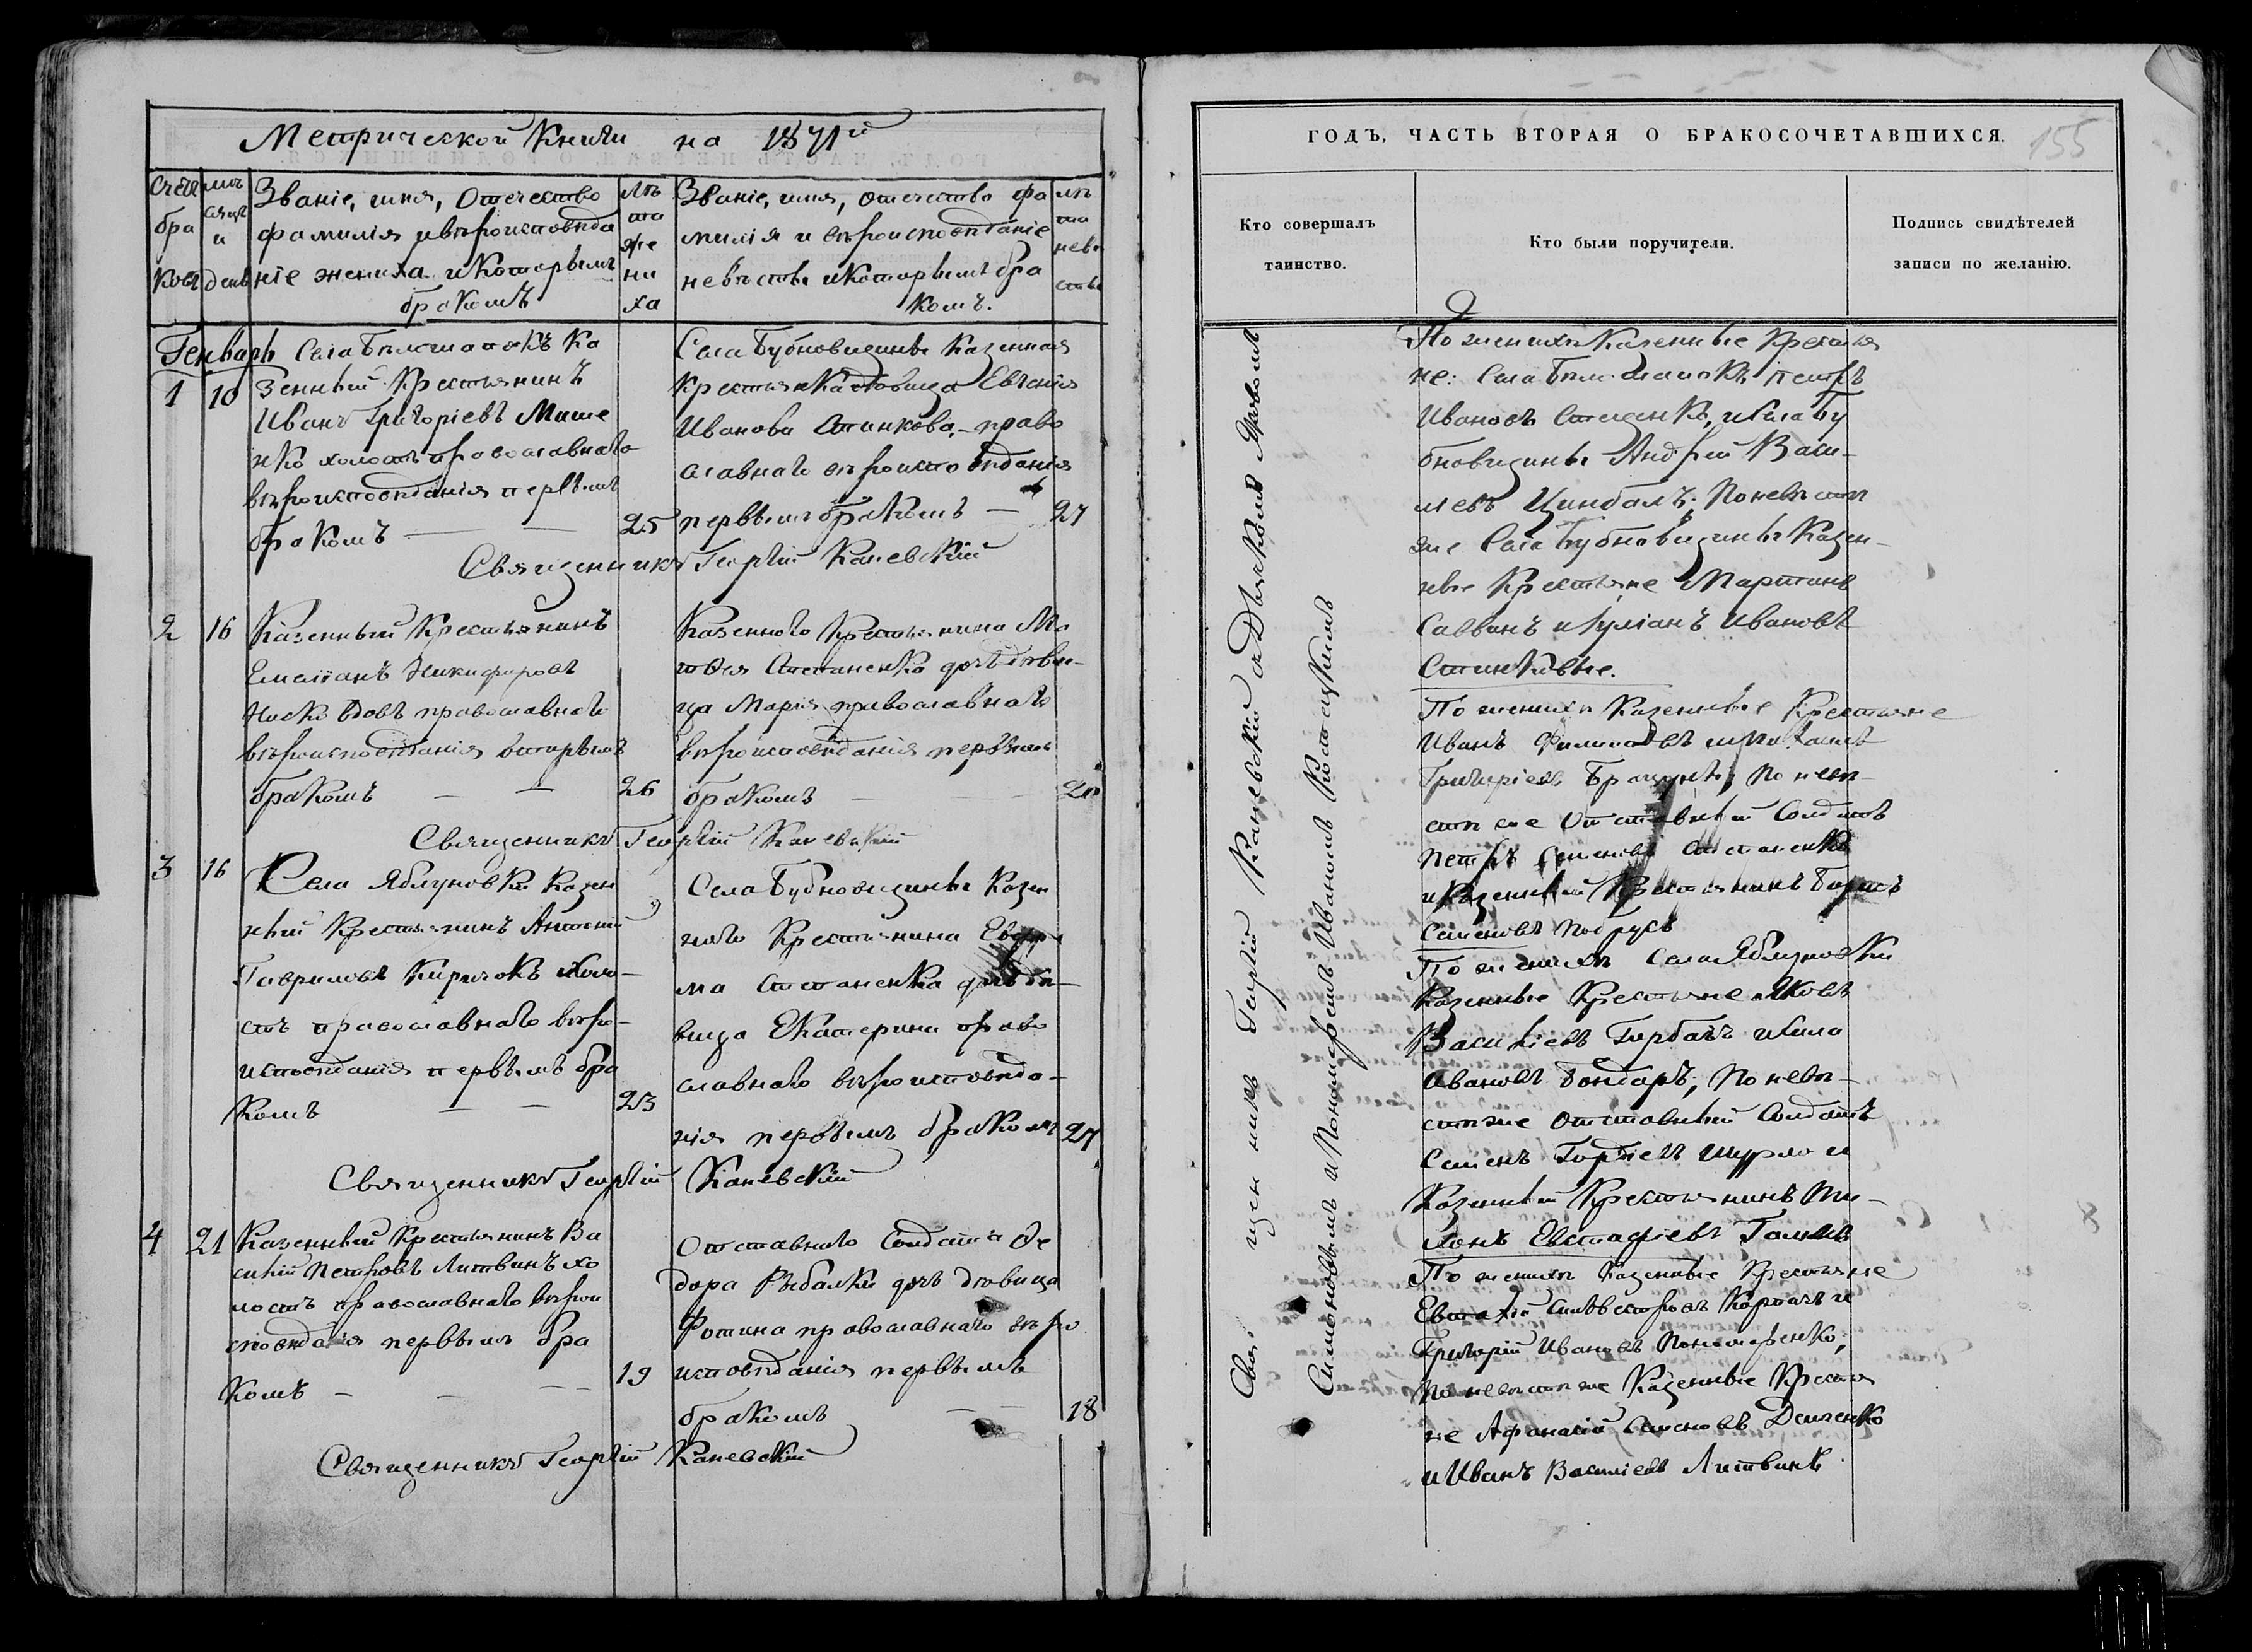 Метрической Книги на 1871й
Счетъ браковъ
мѣсяцъ и день
Званіе, имя, Отечество
фамилія и вѣроисповѣда
ніе жениха и Которымъ
бракомъ
Лѣта жениха
Званіе, имя, отечество фа
милія и вѣроисповѣданіе
невѣсты и Которымъ бра
комъ.
лѣта невѣсты
Генварь
1 10
Села Бѣлошапокъ Ка
зенный Крестьянинъ
Иванъ Григоріевъ Мише
нко холостъ православнаго
вѣроисповѣданія первымъ
бракомъ — — 25
Села Бубновщины Казенная
Крестьянка дѣвица Евгенія
Иванова православнаго вѣроисповѣданія
первымъ бракомъ — 27
Священникъ Георгій Каневскій
2 16
Казенный Крестьянинъ
Емаліанъ Никифоровъ
Носко вдовъ православнаго
вѣроисповѣданія вторымъ
бракомъ — — 26
Казенного Крестьянина Ма
тѳея Степаненка дочь дѣви-
ца Марія православнаго
вѣроисповѣданія первымъ
бракомъ — —
Священникъ Георгій Каневскій
3 16
Села Яблуновки Казен
ный Крестьянинъ Антоній
Гавриловъ Киричокъ Холо-
стъ православнаго вѣро-
исповѣданія первымъ бра
комъ — — 23
Села Бубновщины Казен
наго Крестьянина
ма Степаненка дочь дѣ-
вица Екатерина право
славнаго вѣроисповѣда-
нія первымъ бракомъ 27
Священникъ Георгій Каневскій
4 21
Казенный Крестьянинъ Ва
силій Петровъ Литвинъ хо
лостъ православнаго вѣрои
сповѣданія первымъ бра
комъ — — — 19
Отставнаго Солдата Ѳе
дора Рыбалки дочь дѣвица
Фотина православнаго вѣро
исповѣданія первымъ
бракомъ — — 18
Священникъ Георгій Каневскій
ГОДЪ, ЧАСТЬ ВТОРАЯ О БРАКОСОЧЕТАВШИХСЯ.
155
Кто совершалъ
таинство.
Кто были поручители.
Подпись свидѣтелей
записи по желанію.
Священникъ Георгій Каневскій съ Дьячкомъ
Симоновымъ и Пономаремъ Иваномъ
По женихѣ Казенные Крестья
не: Села Бѣлошапокъ Петръ
Ивановъ Стеценко, и Села Бу
бновщины Андрей Васи-
льевъ Цимбалъ; По невѣстѣ
же Села Бубновщины Казен-
ные Крестьяне Мартинъ
Саввинъ и Іуліанъ Ивановъ
По женихѣ Казенные Крестьяне
Иванъ Филиповъ и Михаилъ
Григоріевъ По невѣ-
стѣ же Отставный Солдатъ
Петръ Семеновъ Степаненко
и Казенный Крестьянинъ Борисъ
Семеновъ
По женихѣ Села Яблуновки
Казенные Крестьяне Яковъ
Василіевъ Горбачъ и
Ивановъ Бондаръ, По невѣ-
стѣ же Отставный Солдатъ
Семенъ Гордіевъ Шурло и
Казенный Крестьянинъ Ти-
хонъ Евстафіевъ
По женихѣ Казенные Крестьяне
Евтихій Силвестровъ и
Григорій Ивановъ Пономаренко,
По невѣстѣ же Казенные Крестья
не Афанасій Семеновъ Демченко
и Иванъ Василіевъ Литвинъ